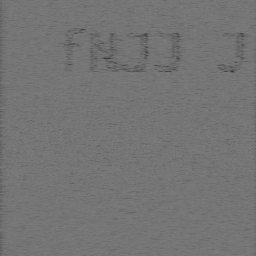 fNJJ J